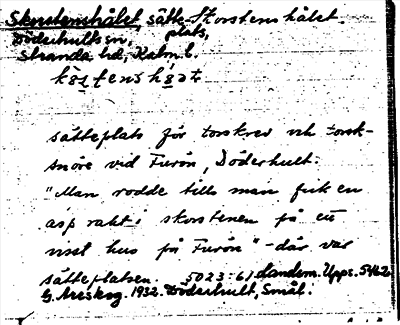 Skorstenshålet sätte- Skorstenshålet.
plats,
Döderhults sn,
Stranda hd, Kalm. l.
sätteplats för torskrev och torsk-
snöre vid Furön, Döderhult.
"Man rodde tills man fick en
asp rakt i skorstenen på ett
visst hus på Furön" - där var
sätteplatsen. 5023:61 Landsm. Upps. 5462.
G. Areskog. 1932. Döderhult, Smål.